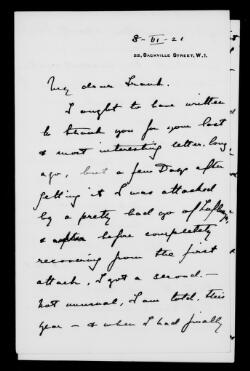 8-III-21
22, SACKVILLE STREET, W.1.
My dear Frank.
I ought to have written
to thank you for your last
& most interesting letter long
ago, but a few days after
getting it I was attacked
by a pretty bad go of
& before completely
recovering from the first
attack, I got a second —
not unusual, I am told, this
year — & when I had finally